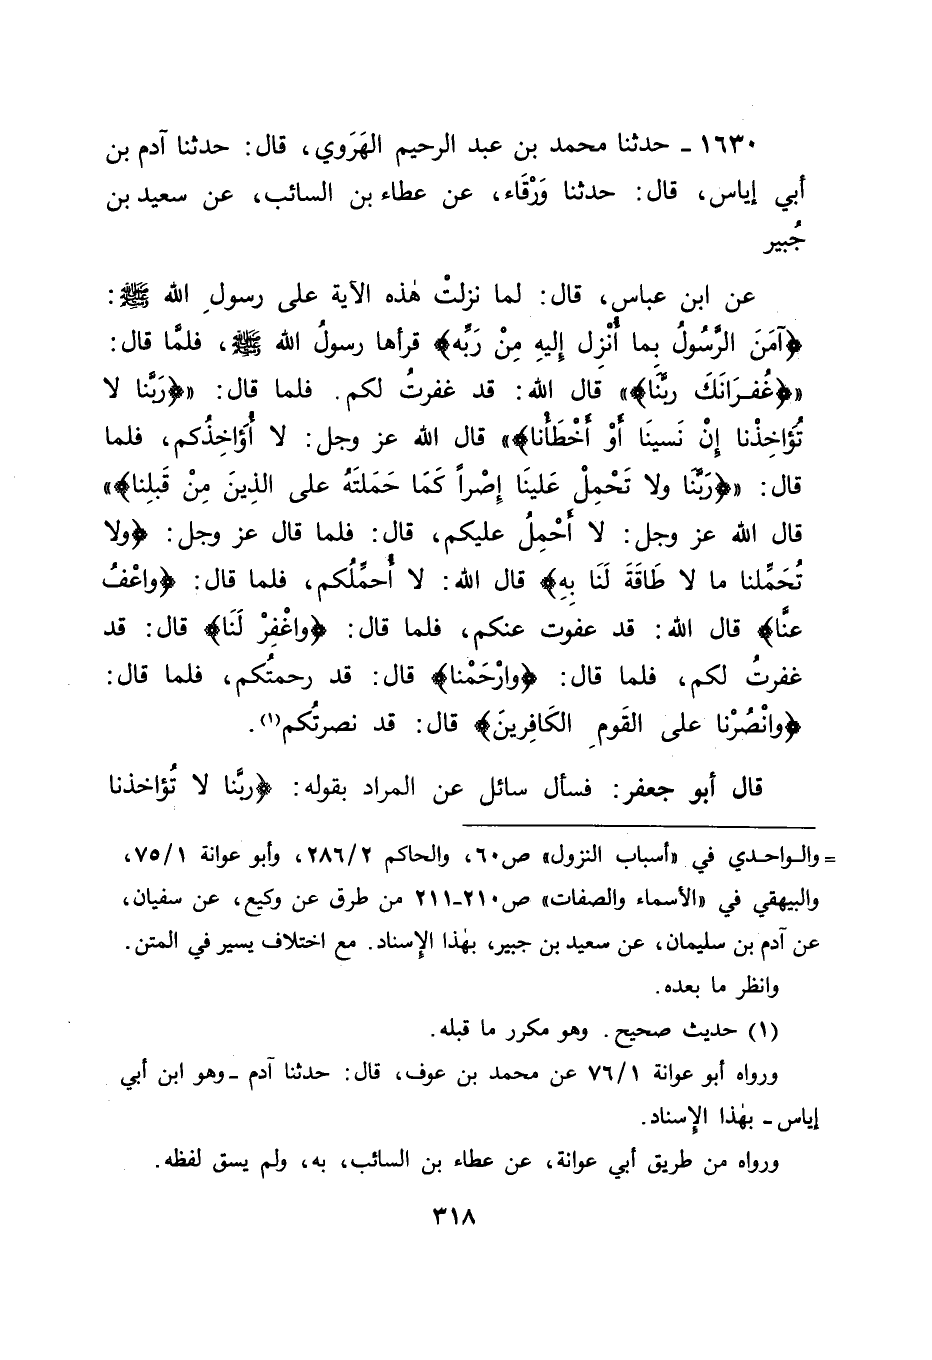 ١٦٣٠ ـ حدثنا محمد بن عبد الرحيم الهَرَوي، قال: حدثنا آدم بن
أبي إياس، قال: حدثنا وَرْقَاء، عن عطاء بن السائب، عن سعيد بن
جُبير
عن ابن عباس، قال: لما نزلتْ هٰذه الآية على رسولِ الله ﷺ:
﴿آمَنَ الرَّسُولُ بِما أُنْزِل إليهِ مِنْ رَبِّه﴾ قرأها رسولُ الله ﷺ، فلمَّا قال:
«﴿غُفـرَانَكَ ربَّنَا﴾» قال الله: قد غفرتُ لكم. فلما قال: «﴿رَبَّنا لا
تُؤَاخِذْنا إنْ نَسينَا أَوْ أَخْطَأْنا﴾» قال الله عز وجل: لا أُؤَاخِذُكم، فلما
قال: «﴿رَبَّنَا ولا تَحْمِلْ عَلينَا إصْراً كَمَا حَمَلتَهُ على الذينَ مِنْ قَبلِنا﴾»
قال الله عز وجل: لا أَحْمِلُ عليكم، قال: فلما قال عز وجل: ﴿ولا
تُحَمِّلنا ما لا طَاقَةَ لَنَا بِهِ﴾ قال الله: لا أُحمِّلُكم، فلما قال: ﴿واعْفُ
عنَّا﴾ قال الله: قد عفوت عنكم، فلما قال: ﴿واغْفِرْ لَنَا﴾ قال: قد
غفرتُ لكم، فلما قال: ﴿وارْحَمْنا﴾ قال: قد رحمتُكم، فلما قال:
﴿وانْصُرْنا على القَومِ الكَافِرينَ﴾ قال: قد نصرتُكم(١).
قال أبو جعفر: فسأل سائل عن المراد بقوله: ﴿ربَّنا لا تُؤاخذنا
= والـواحـدي في «أسباب النزول» ص٦٠، والحاكم ٢٨٦/٢، وأبو عوانة ٧٥/١،
والبيهقي في «الأسماء والصفات» ص٢١٠ـ٢١١ من طرق عن وكيع، عن سفيان،
عن آدم بن سليمان، عن سعيد بن جبير، بهٰذا الإِسناد. مع اختلاف يسير في المتن.
وانظر ما بعده.
(١) حديث صحيح. وهو مكرر ما قبله.
ورواه أبو عوانة ٧٦/١ عن محمد بن عوف، قال: حدثنا آدم ـ وهو ابن أبي
إياس ـ بهٰذا الإِسناد.
ورواه من طريق أبي عوانة، عن عطاء بن السائب، به، ولم يسق لفظه.
٣١٨